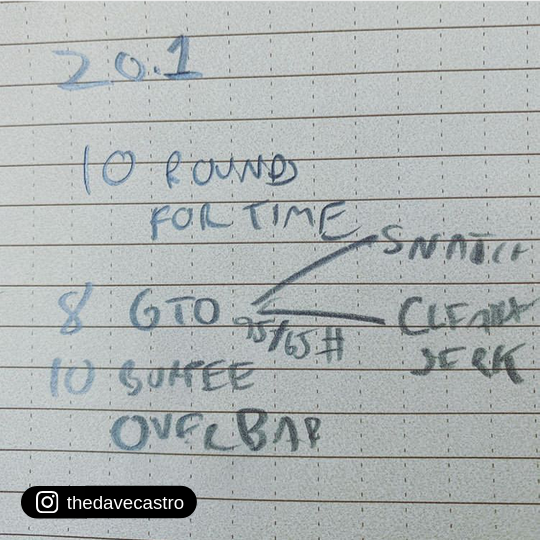 20.1
10 ROUNDS
FOR TIME
SNATCH
8 GTO
95/65#
CLEAN
JERK
10 BURPEE
OVER BAR
thedavecastro